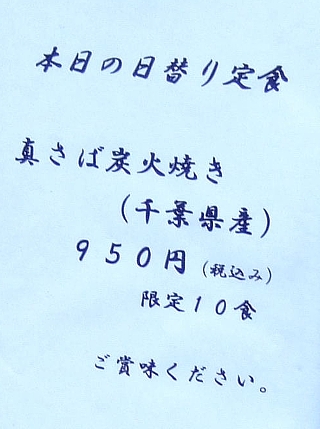 本日の日替り定食
真さば炭火焼き
（千葉県産）
９５０円（税込み）
限定１０食
ご賞味ください。